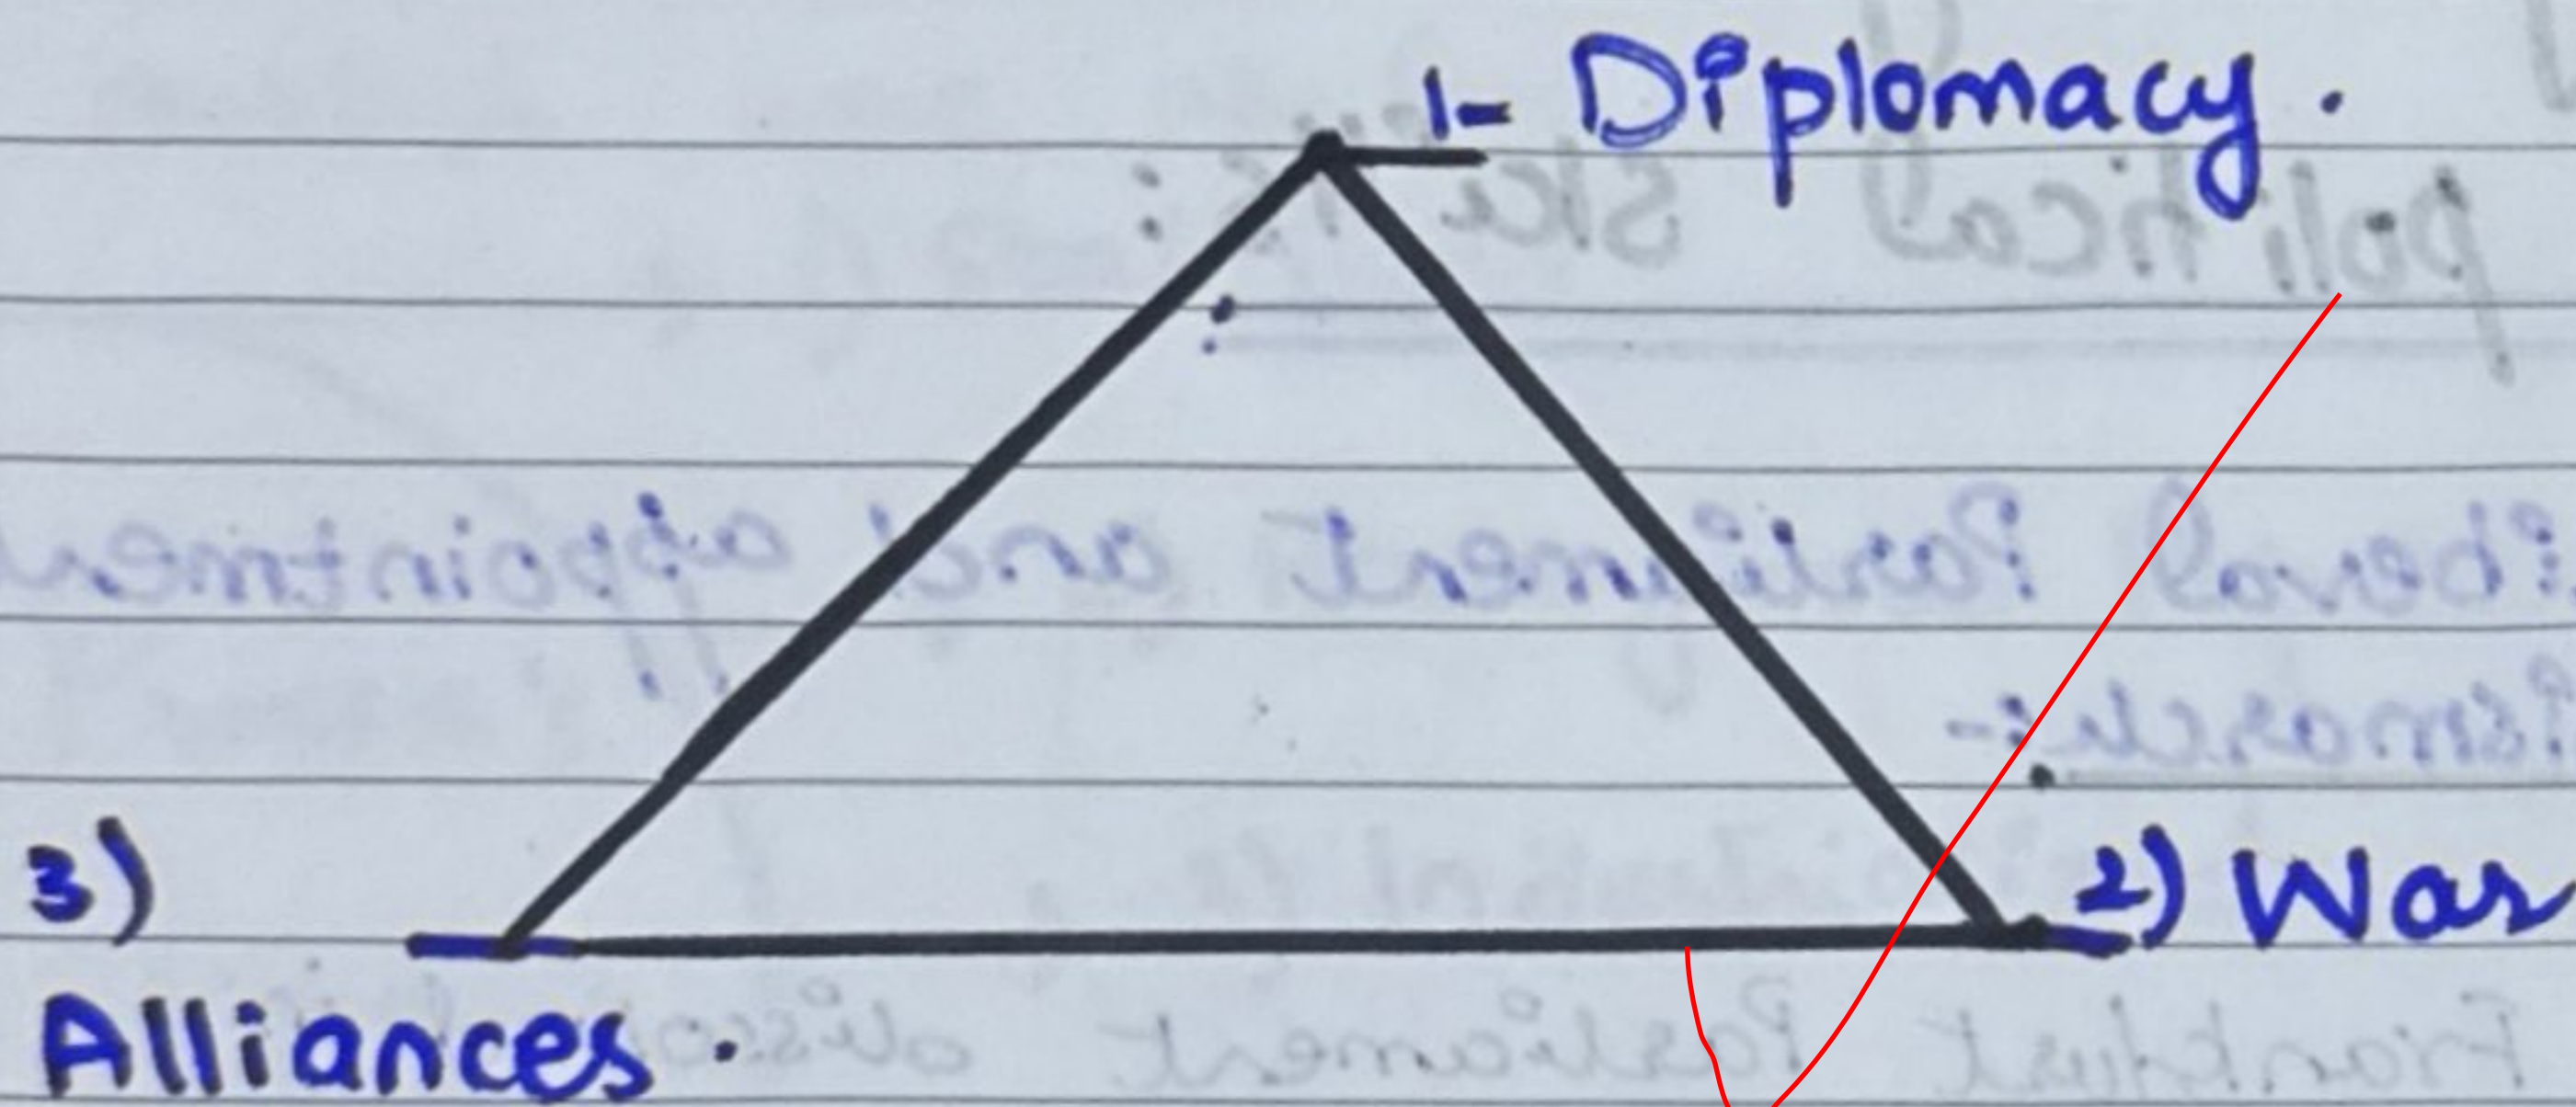 1- Diplomacy.
3)
2) War
Alliances.